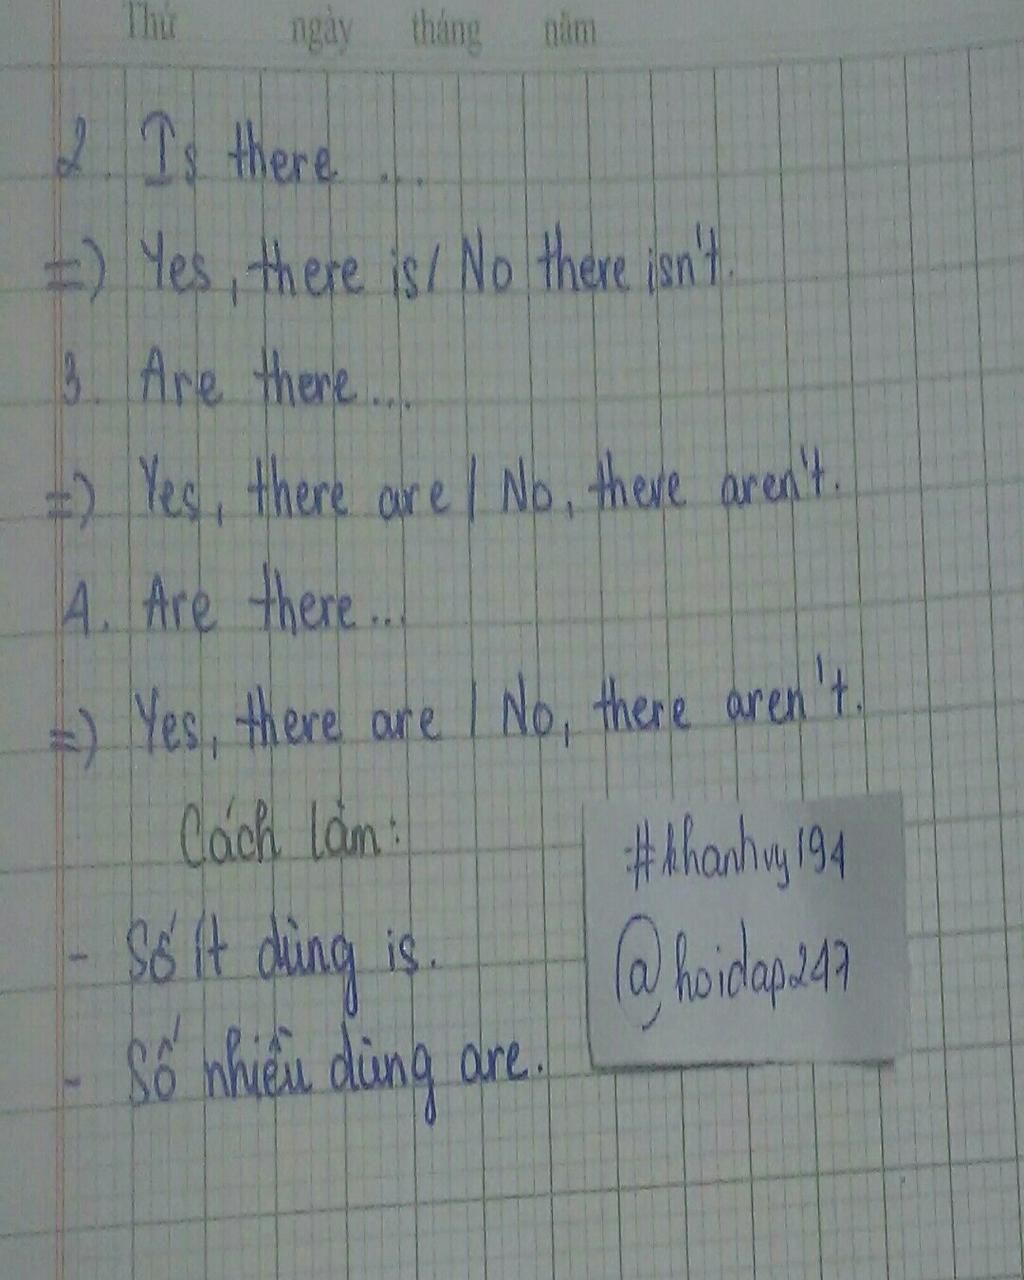 Thứ ngày tháng năm
2. Is there ...
=) Yes, there is / No there isn't.
3. Are there ...
=) Yes, there are / No, there aren't.
4. Are there...
=) Yes, there are / No, there aren't.
Cách làm:
- Số ít dùng is.
- Số nhiều dùng are.
#khanhvy194
@hoidap247